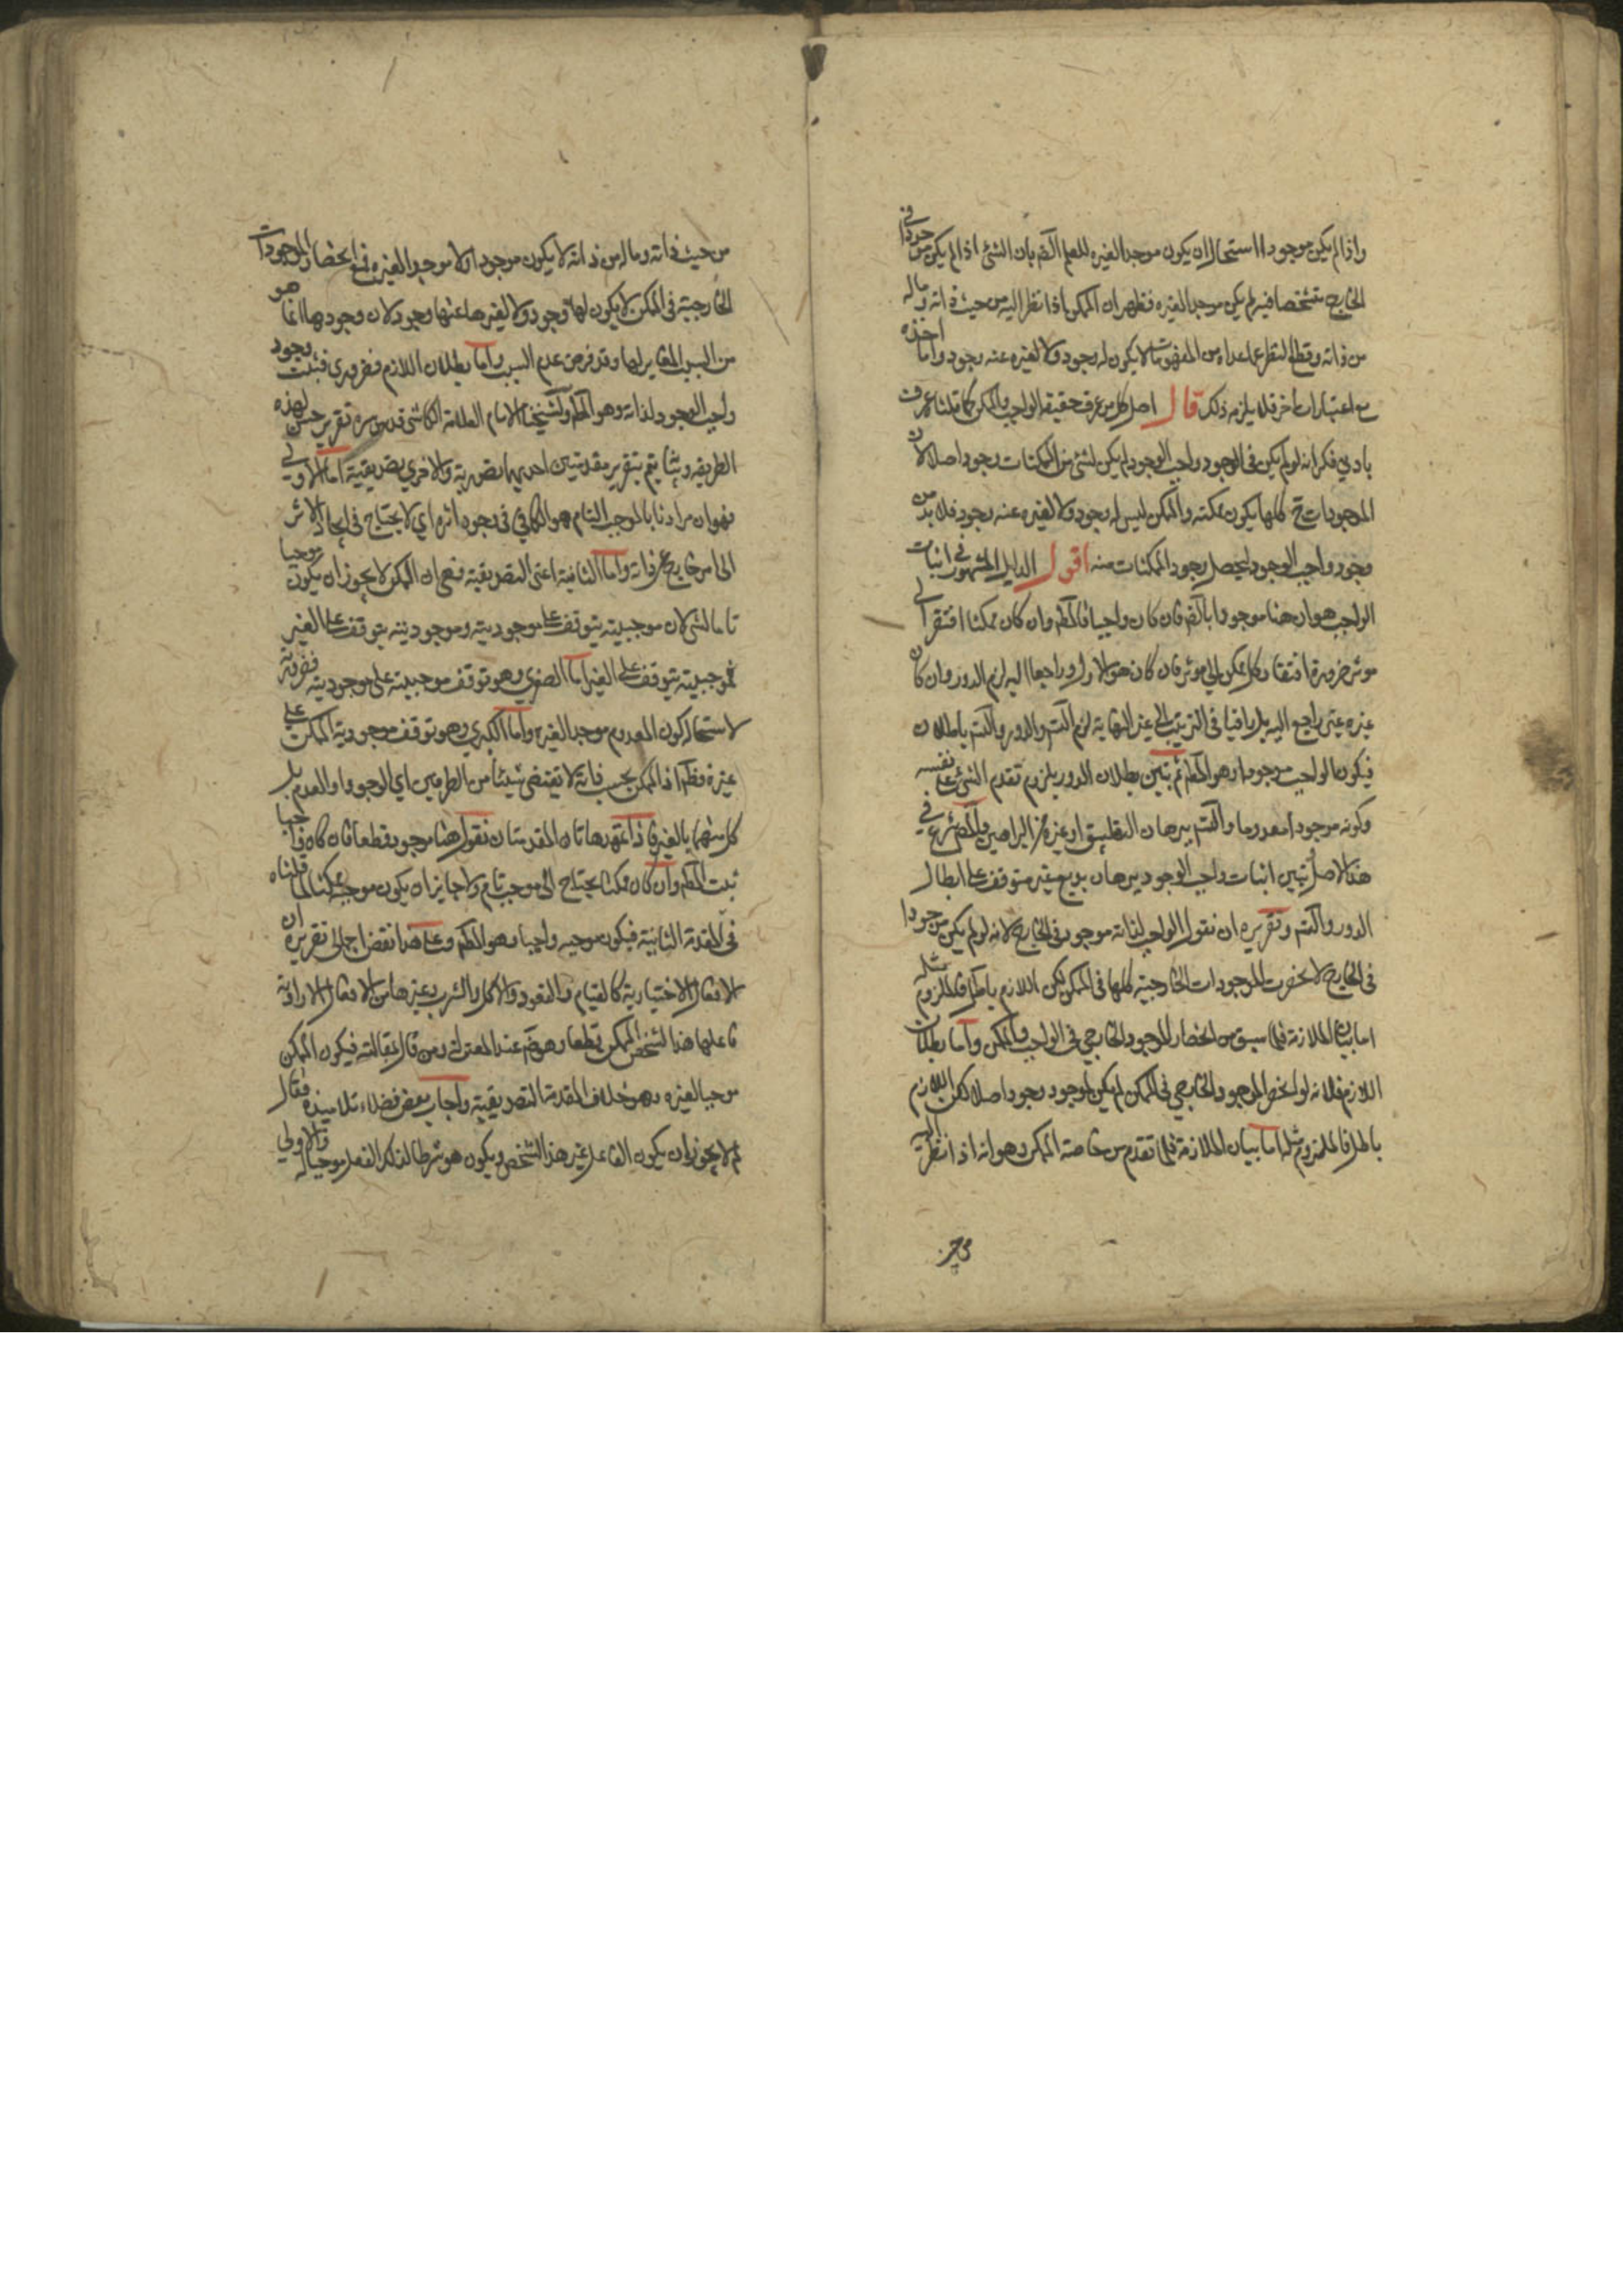 واذا لم يكن موجودا استحال ان يكون موجدا لغيره للعلم الضـ بان الشئ اذا لم يكن موجودا في
الخارج متشخصا فيه لم يكن موجدا لغيره فظهر ان الممكن اذا نظر اليه من حيث ذاته وماله
من ذاته وقطع النظر عما عداه من المفهومات لا يكون له وجود ولا لغيره عنه وجود واما اخذه
مع اعتبارات اخر فلا يلزمه ذلك قال اصل كل من عرف حقيقة الواجب والممكن كما قلنا عرف
بادني فكر انه لو لم يكن في الوجود واجب الوجود لم يكن لشئ من الممكنات وجود اصلا لان
الموجودات ح كلها يكون ممكنه والممكن ليس له وجود ولا لغيره عنه وجود فلا بد من
وجود واجب الوجود ليحصل وجود الممكنات منه اقول الدليل المشهور في اثبات
الواجب هو ان هنا موجودا بالضـ فان كان واجبا فالمطـ وان كان ممكنا افتقر الى
موثر ضرورة افتقار كل ممكن الي موثر فان كان هو الاول او راجعا اليه لزم الدور وان كان
غيره غير راجع اليه بل باقيا في الترتيب الي غير النهاية لزم التسـ والدور والتسـ باطلان
فيكون الواجب موجودا وهو المطـ ثم تبين بطلان الدور بلزوم تقدم الشئ على نفسه
وكونه موجودا معدوما والتسـ ببرهان التطبيق او غيره من البراهين والمصـ شرع في
هذا الاصل تبيين اثبات واجب الوجود ببرهان بديع غير متوقف على ابطال
الدور والتسـ وتقريره ان نقول الواجب لذاته موجود في الخارج لانه لو لم يكن موجودا
في الخارج لانحصرت الموجودات الخارجية كلها في الممكن لكن اللازم باطل فالملزوم مثله
اما بيان الملازمة فلما سبق من انحصار الموجود الخارجي في الواجب والممكن واما بطلان
اللازم فلانه لو انحصر الموجود الخارجي في الممكن لم يكن لموجود وجود اصلا لكن اللازم
باطل فالملزوم مثله اما بيان الملازمة فلما تقدم من خاصة الممكن وهو انه اذا نظر اليه
من حيث ذاته وماله من ذاته لا يكون موجودا ولا موجدا لغيره فمع انحصار الموجودات
الخارجية في الممكن لا يكون لها وجود ولا لغيرها عنها وجود لان وجودها انما هو
من السبب المغاير لها وقد فرض عدم السبب واما بطلان اللازم فضروري فثبت وجود
واجب الوجود لذاته وهو المطـ ولشيخنا الامام العلامة الكاشي قدس سره تقرير حسن لهذه
الطريقة يتم بتقرير مقدمتين احديهما تصورية والاخري تصديقية اما الاولي
فهو ان مرادنا بالموجب التام هو الكافي في وجود اثره اي لا يحتاج في ايجاد الاثر
الي امر خارج عن ذاته واما الثانية اعني التصديقية فهي ان الممكن لا يجوز ان يكون موجبا
تاما لشئ لان موجبيته يتوقف على موجوديته وموجوديته يتوقف على الغير
فموجبيته يتوقف على الغير اما الصغري وهو توقف موجبيته على موجوديته فضرورية
لاستحالة كون المعدوم موجدا لغيره واما الكبري وهو توقف موجودية الممكن على
غيره فظـ اذ الممكن بحسب ذاته لا يقتضي شيئا من الطرفين اي الوجود او العدم بل
كل منهما بالغير فاذا تمهد هاتان المقدمتان نقول هنا موجود قطعا فان كان واجبا
ثبت المطـ وان كان ممكنا يحتاج الي موجب تام ولا جايز ان يكون موجبه ممكنا لما قلناه
في المقدمة الثانية فيكون موجبه واجبا وهو المطـ وعلى هذا نقض اجمالي تقريره ان
الافعال الاختيارية كالقيام والقعود والاكل والشرب وغيرها من الافعال الارادية
فاعلها هذا الشخص الممكن قطعا وهو تم عند المعتزلة ومن قال بمقالته فيكون الممكن
موجبا لغيره وهو خلاف المقدمة التصديقية واجاب بعض فضلاء تلاميذه فقال
لم لا يجوز ان يكون الفاعل غير هذا الشخص ويكون هو شرطا لذلك الفعل موجبا له والاولي